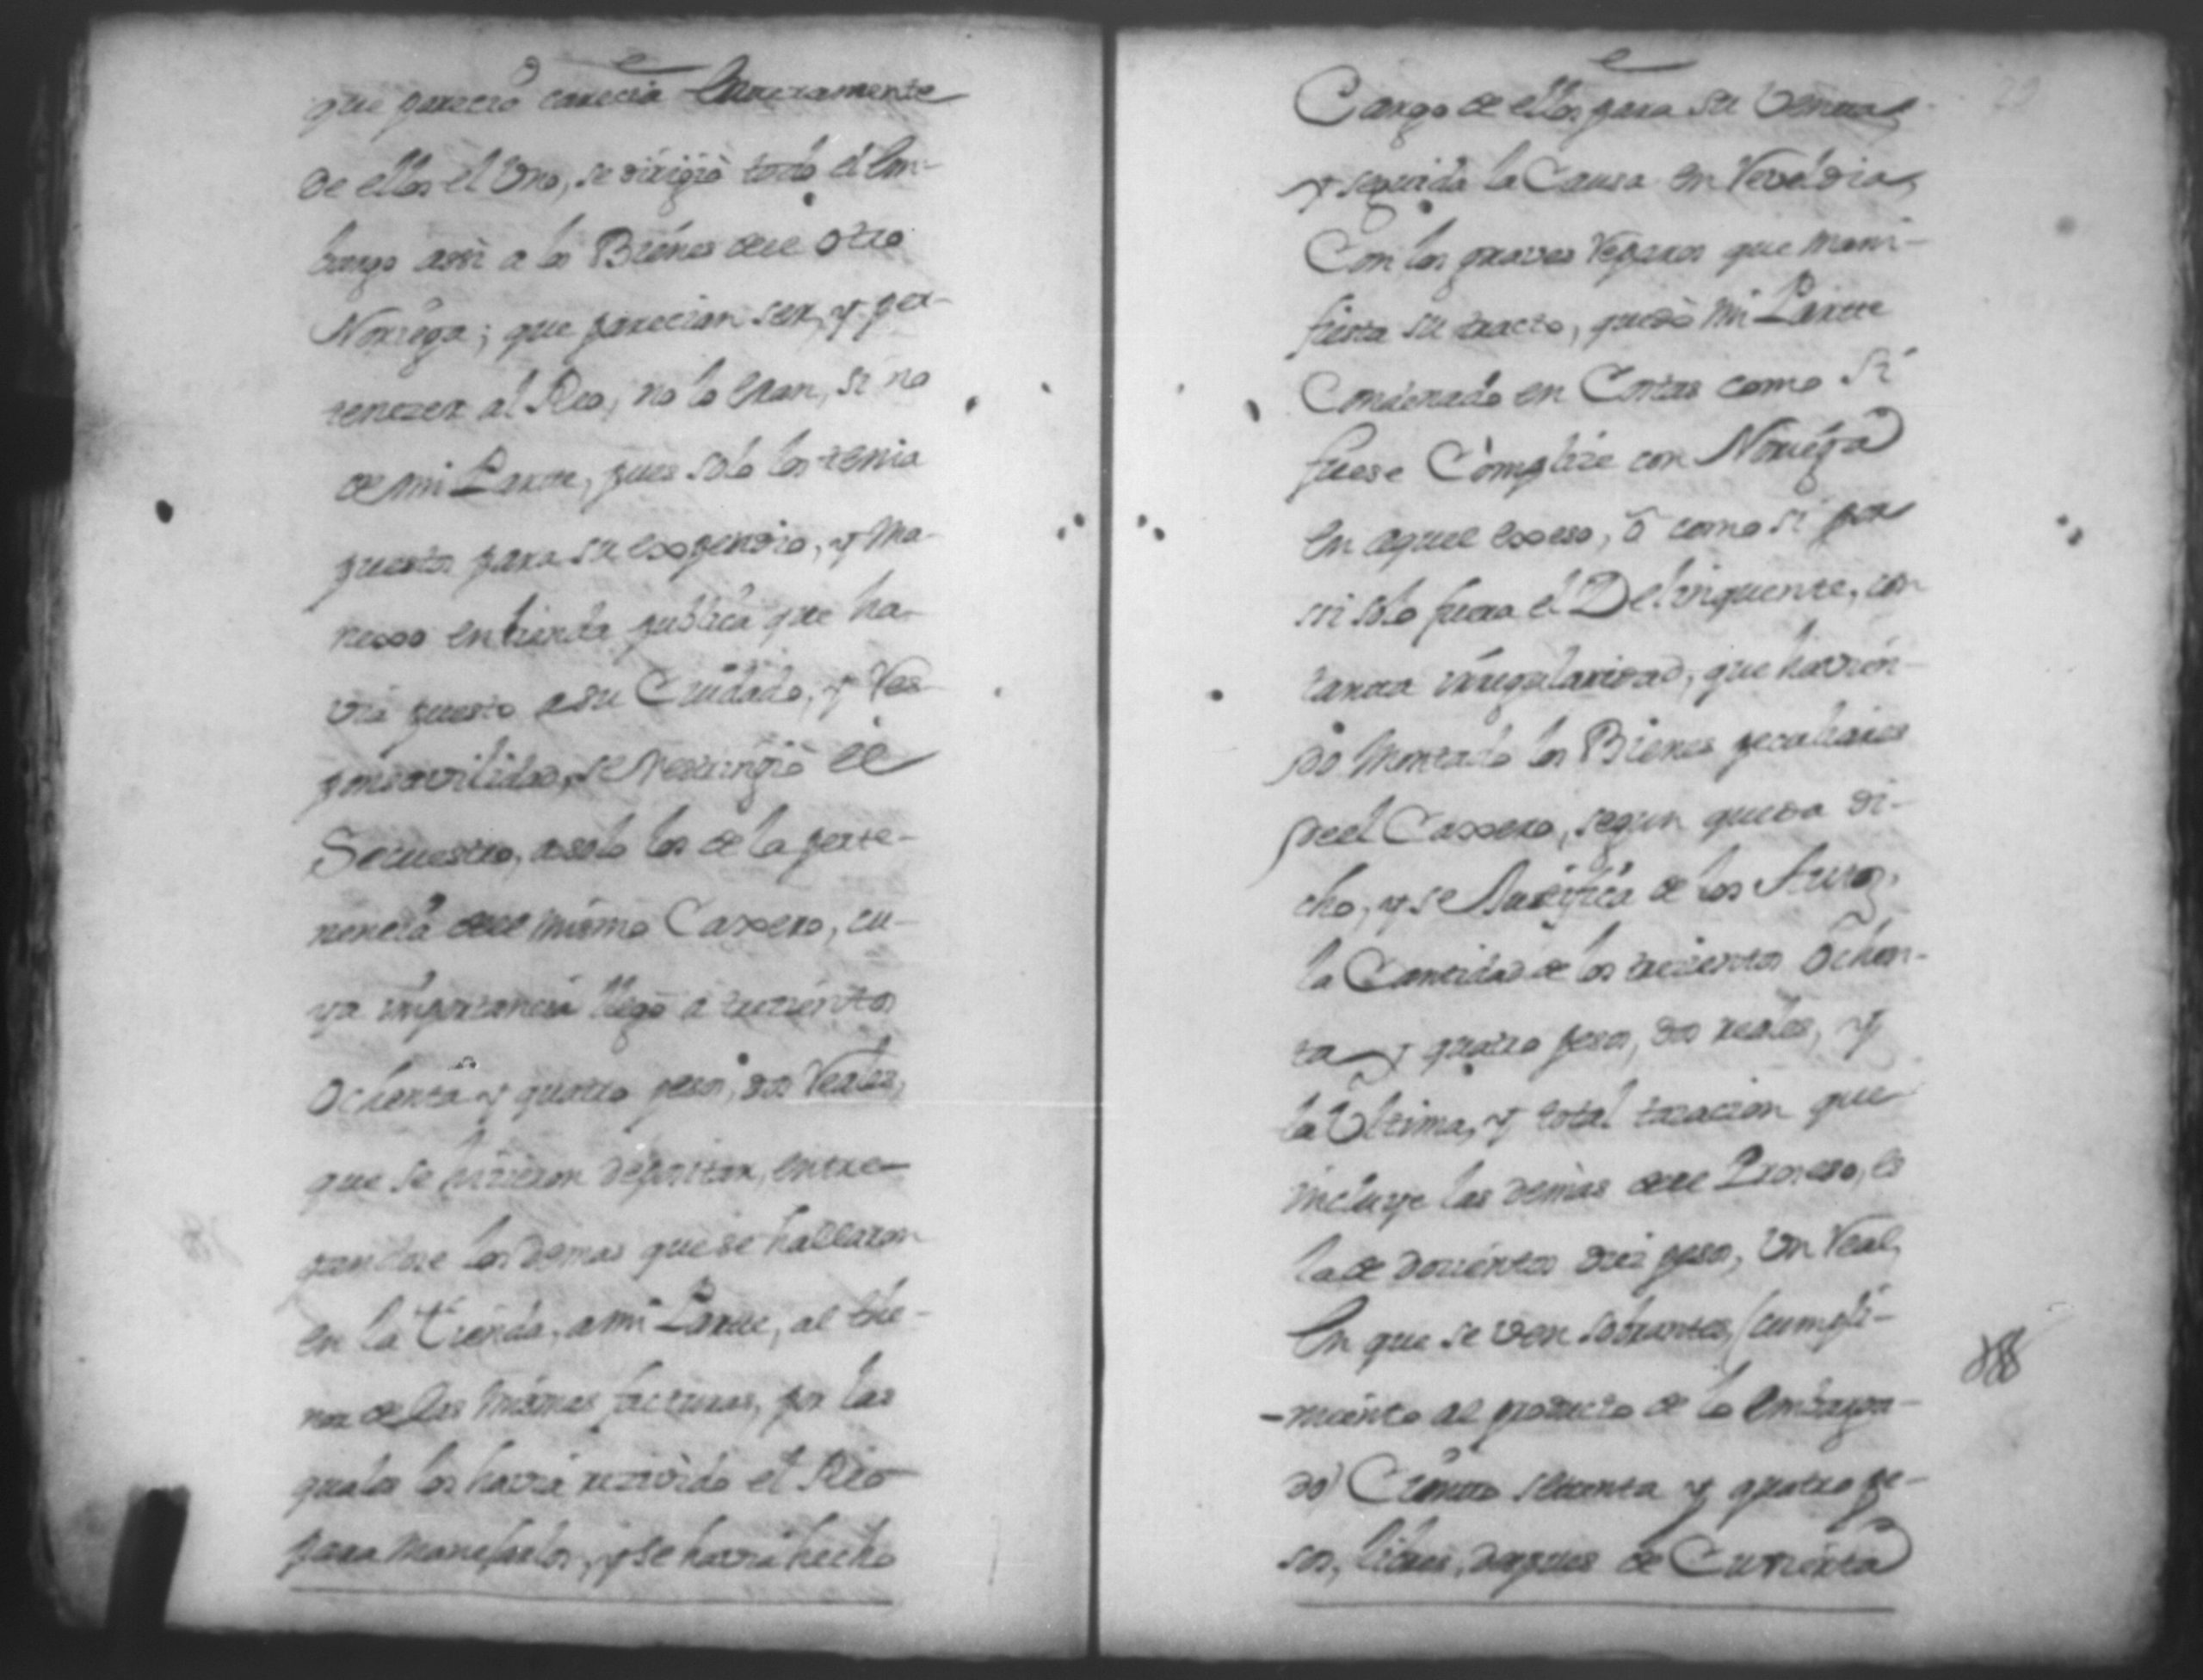 que parecio carecia Enteramente
de ellos el Uno, se dirigiò todo el Em-
bargo assi a los Biénes de el otro
Noriega; que parecian ser, y per-
tenezer al Reo, no lo Eran, si no
de mi Parte, pues solo los tenia
puestos para su expendio, y Ma-
nexo en tienda publica que ha-
via puesto a su Cuidado, y Res-
ponsavilidad, se restringiò el
Secuestro, a solo los de la perte-
nencia de el mismo Caxero, cu-
ya importancia llegò a trecientos
Ochenta y quatro pesos, dos Reales,
que se hizieron depositar, entre-
gandose los demas que se hallaron
en la tienda, a mi Parte, al the-
nor de las mismas facturas, por las
quales los havia recivido el Reo
para manejarlos, y se havia hecho
Cargo de ellos para su Venta
y seguida la Causa en Reveldia,
Con los graves reparos que mani-
fiesta su tracto, quedò mi Parte
Condenado en Costas como si
fuese Còmplize con Noriega
en aquel exceso, ò como si por
si solo fuera el Delinquente, con
tanta irregularidad, que havien-
do Montado los Bienes peculiares
de el Caxero, segun queda di-
cho, y se Justifica de los Autos,
la Cantidad de los trecientos Ochen-
ta y quatro pesos, dos reales, y
la Ultima, y total tazacion que
incluye las demas de el Proceso, es
la de docientos diez pesos, Un Real,
En que se ven sobrantes (cumpli-
-miento al producto de lo Embarga-
do) Ciento setenta y quatro pe-
sos, libres, despues de Cuvierta